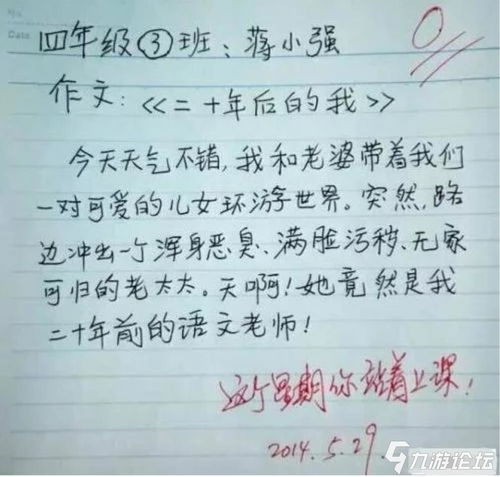 No.
Date
四年级③班：蒋小强
0
作文：《二十年后的我》
今天天气不错，我和老婆带着我们
一对可爱的儿女环游世界。突然，路
边冲出一个浑身恶臭、满脸污秽、无家
可归的老太太。天啊！她竟然是我
二十年前的语文老师！
这个星期你站着上课！
2014.5.29
九游论坛